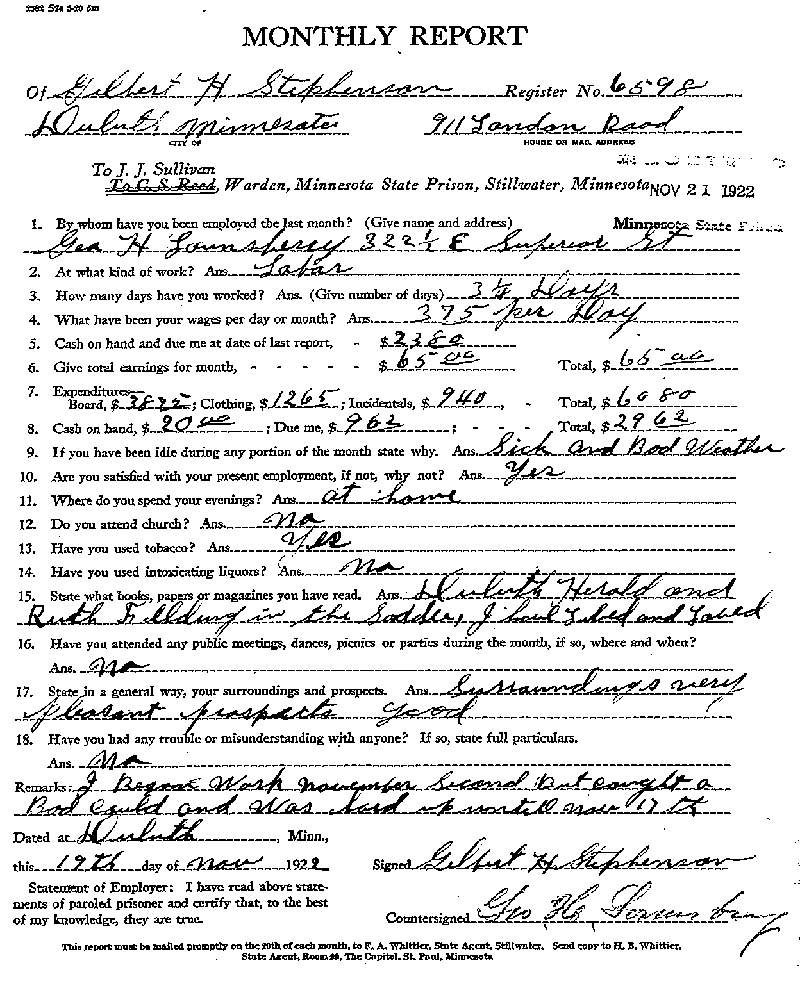 MONTHLY REPORT
Of Gilbert H Stephenson Register No. 6598
Duluth Minnesota 911 London Road
CITY OF HOUSE OR MAIL ADDRESS
To J. J. Sullivan
To C. S. Reed, Warden, Minnesota State Prison, Stillwater, Minnesota NOV 21 1922
1. By whom have you been employed the last month? (Give name and address) Minnesota State Prison
Geo H Lounsberry 322½ E Superior St
2. At what kind of work? Ans. Labar
3. How many days have you worked? Ans. (Give number of days) 3¼ Days
4. What have been your wages per day or month? Ans. 375 per Day
5. Cash on hand and due me at date of last report, - $2380
6. Give total earnings for month, - - - - - $6500 Total, $6500
7. Expenditures—
Board, $3875; Clothing, $1265; Incidentals, $940, - Total, $6080
8. Cash on hand, $2000; Due me, $962; - - - Total, $2962
9. If you have been idle during any portion of the month state why. Ans. Sick and Bad Weather
10. Are you satisfied with your present employment, if not, why not? Ans. Yes
11. Where do you spend your evenings? Ans. at home
12. Do you attend church? Ans. No
13. Have you used tobacco? Ans. Yes
14. Have you used intoxicating liquors? Ans. No
15. State what books, papers or magazines you have read. Ans. Duluth Herald and
Ruth Fielding in the Saddle, I have Lived and Loved
16. Have you attended any public meetings, dances, picnics or parties during the month, if so, where and when?
Ans. No
17. State in a general way, your surroundings and prospects. Ans. Surroundings very
pleasant prospects good
18. Have you had any trouble or misunderstanding with anyone? If so, state full particulars.
Ans. No
Remarks: I Began Work november Second But caught a
Bad Could and Was laid up until nov 17 th
Dated at Duluth, Minn.,
this 19th day of Nov 1922 Signed Gilbert H Stephenson
Statement of Employer: I have read above state-
ments of paroled prisoner and certify that, to the best
of my knowledge, they are true. Countersigned Geo H, Lounsberry
This report must be mailed promptly on the 20th of each month, to F. A. Whittier, State Agent, Stillwater. Send copy to H. B. Whittier,
State Agent, Room 28, The Capitol, St. Paul, Minnesota